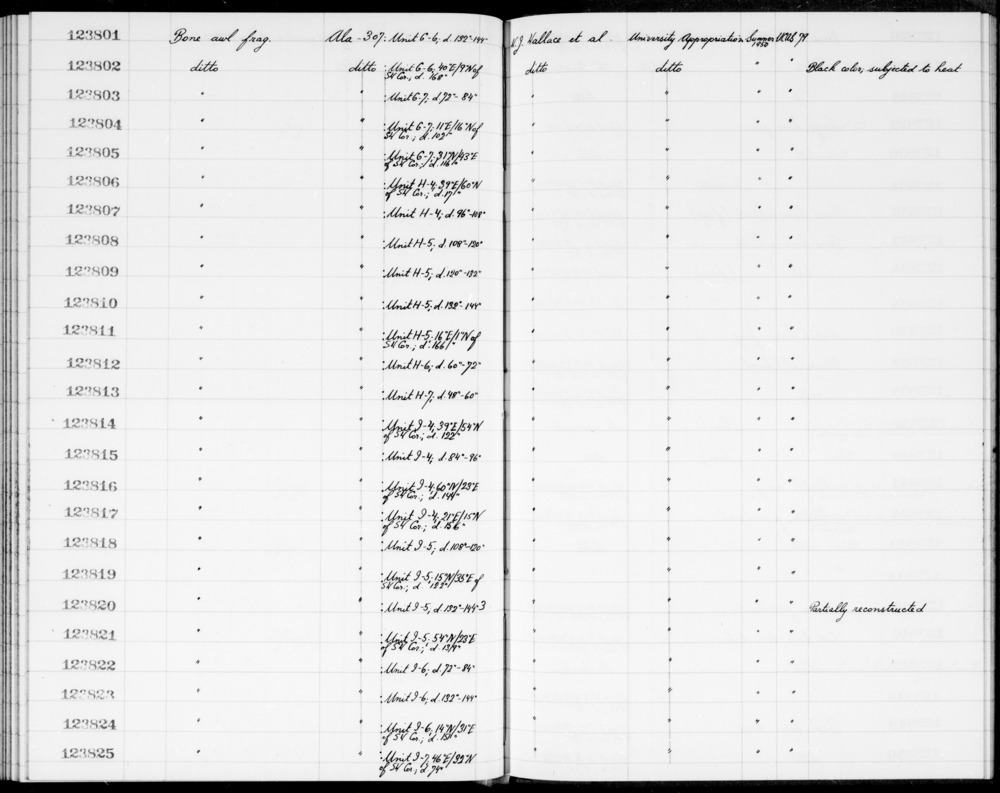 123801 Bone awl frag. Ala-307: Unit G-6, d. 132"-144" W.J. Wallace et al. University Appropriation Summer 1950 UCAS 79
123802 ditto ditto : Unit G-6, 40"E/9"N of SW Cor.; d. 160" ditto ditto " " Black color; subjected to heat
123803 " " : Unit G-7; d. 72"-84" " " " "
123804 " " : Unit G-7; 11"E/16"N of SW Cor.; d. 102" " " " "
123805 " " : Unit G-7; 31"N/43"E of SW Cor.; d. 116" " " " "
123806 " " : Unit H-4; 39"E/60"N of SW Cor.; d. " " " "
123807 " " : Unit H-4; d. 96"-108" " " " "
123808 " " : Unit H-5; d. 108"-120" " " " "
123809 " " : Unit H-5; d. 120"-132" " " " "
123810 " " : Unit H-5; d. 132"-144" " " " "
123811 " " : Unit H-5; 16"E/1"N of SW Cor.; d. 166" " " " "
123812 " " : Unit H-6; d. 60"-72" " " " "
123813 " " : Unit H-7; d. 48"-60" " " " "
123814 " " : Unit I-4; 39"E/54"N of SW Cor.; d. 122" " " " "
123815 " " : Unit I-4; d. 84"-96" " " " "
123816 " " : Unit I-4; 60"N/23"E of SW Cor.; d. 144" " " " "
123817 " " : Unit I-4; 21"E/15"N of SW Cor.; d. 156" " " " "
123818 " " : Unit I-5; d. 108"-120" " " " "
123819 " " : Unit I-5; 15"N/35"E of SW Cor.; d. 122" " " " "
123820 " " : Unit I-5; d. 132"-144" 3 " " " " Partially reconstructed
123821 " " : Unit I-5; 54"N/23"E of SW Cor.; d. " " " "
123822 " " : Unit I-6; d. 72"-84" " " " "
123823 " " : Unit I-6; d. 132"-144" " " " "
123824 " " : Unit I-6; 14"N/31"E of SW Cor.; d. " " " "
123825 " " : Unit I-7; 46"E/32"N of SW Cor.; d. 74" " " " "